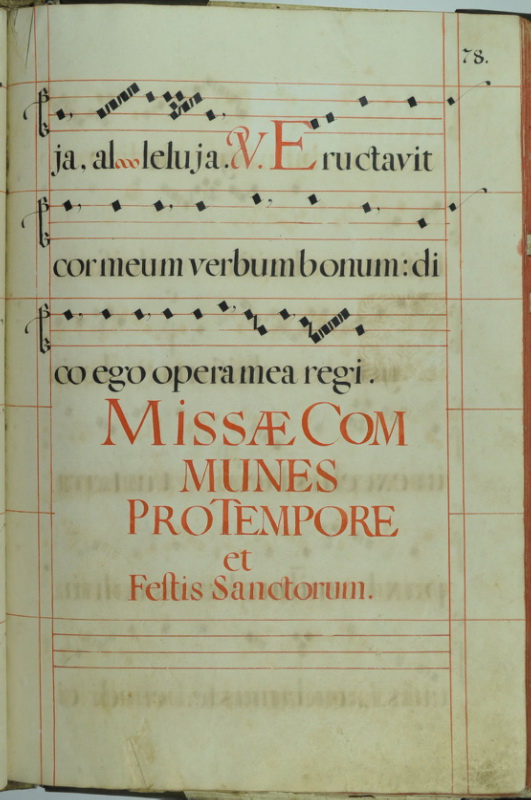 78.
ja, al leluja. V. Eructavit
cor meum verbum bonum: di
co ego opera mea regi.
MISSÆ COM
MUNES
PRO TEMPORE
et
Feſtis Sanctorum.